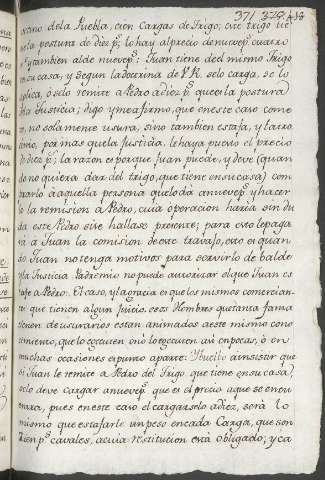 371
cino de la Puebla, cien Cargas de Trigo; este trigo tie
ne la postura de diez p.s lo hay al precio de nueve p.s quatro r.s
y tambien al de nueve p.s: Juan tiene de el mismo Trigo
en su casa, y segun la doctrina de V.R. se lo carga, se lo
aplica, ó se lo remite a Pedro a diez p.s que es la postura
de la Justicia; digo y me afirmo, que en este caso come
te, no solamente usura, sino tambien estafa, y latro
cinio, por mas que la Justicia le haya puesto el precio
de diez p.s; la razon es porque Juan puede, y deve (quan
do no quiera dar del trigo, que tiene en su casa) com
prarlo á aquella persona que lo dá a nueve p.s y hacer
le la remision a Pedro, cuia operacion haria sin du
da este Pedro si se hallase presente; para esto le paga
rá a Juan la comision de este travajo, esto es quan
do Juan no tenga motivos para servirlo de balde
y la Justicia Padre mio no puede autorizar el que Juan es
tafe a Pedro. El caso, y la gracia es que los mismos comercian
tes que tienen algun Juicio, esos Hombres que tanta fama
tienen de usurarios estan animados de este mismo cono
cimiento, que lo executen ó no lo executen asi en pocas, ó en
muchas ocasiones es punto aparte: Y buelvo a insistir que
si Juan le remite a Pedro del Trigo que tiene en su casa,
se lo deve cargar a nueve p.s que es el precio a que se encu
entra, pues en este caso el cargarselo a diez, será lo
mismo que estafarle un peso en cada Carga, que son
cien p.s cavales, a cuia restitucion está obligado; y ca